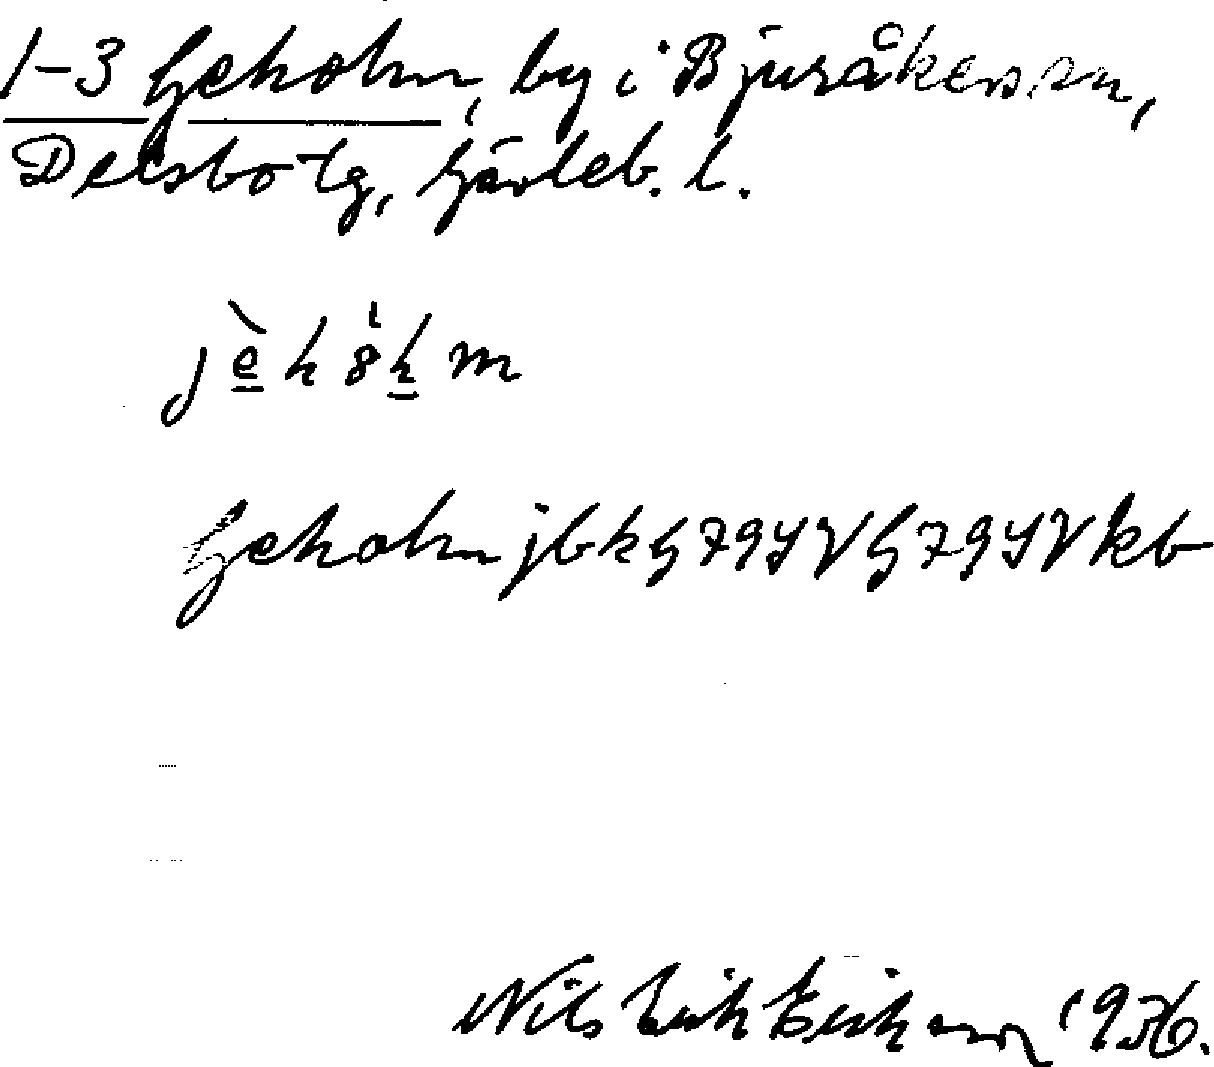 1-3 Geholm, by i Bjuråkers sn,
Delsbo tg, Gävleb. l.
Geholm jbkG79SVG79SVkb
Nils Erik Eriksson 1936.